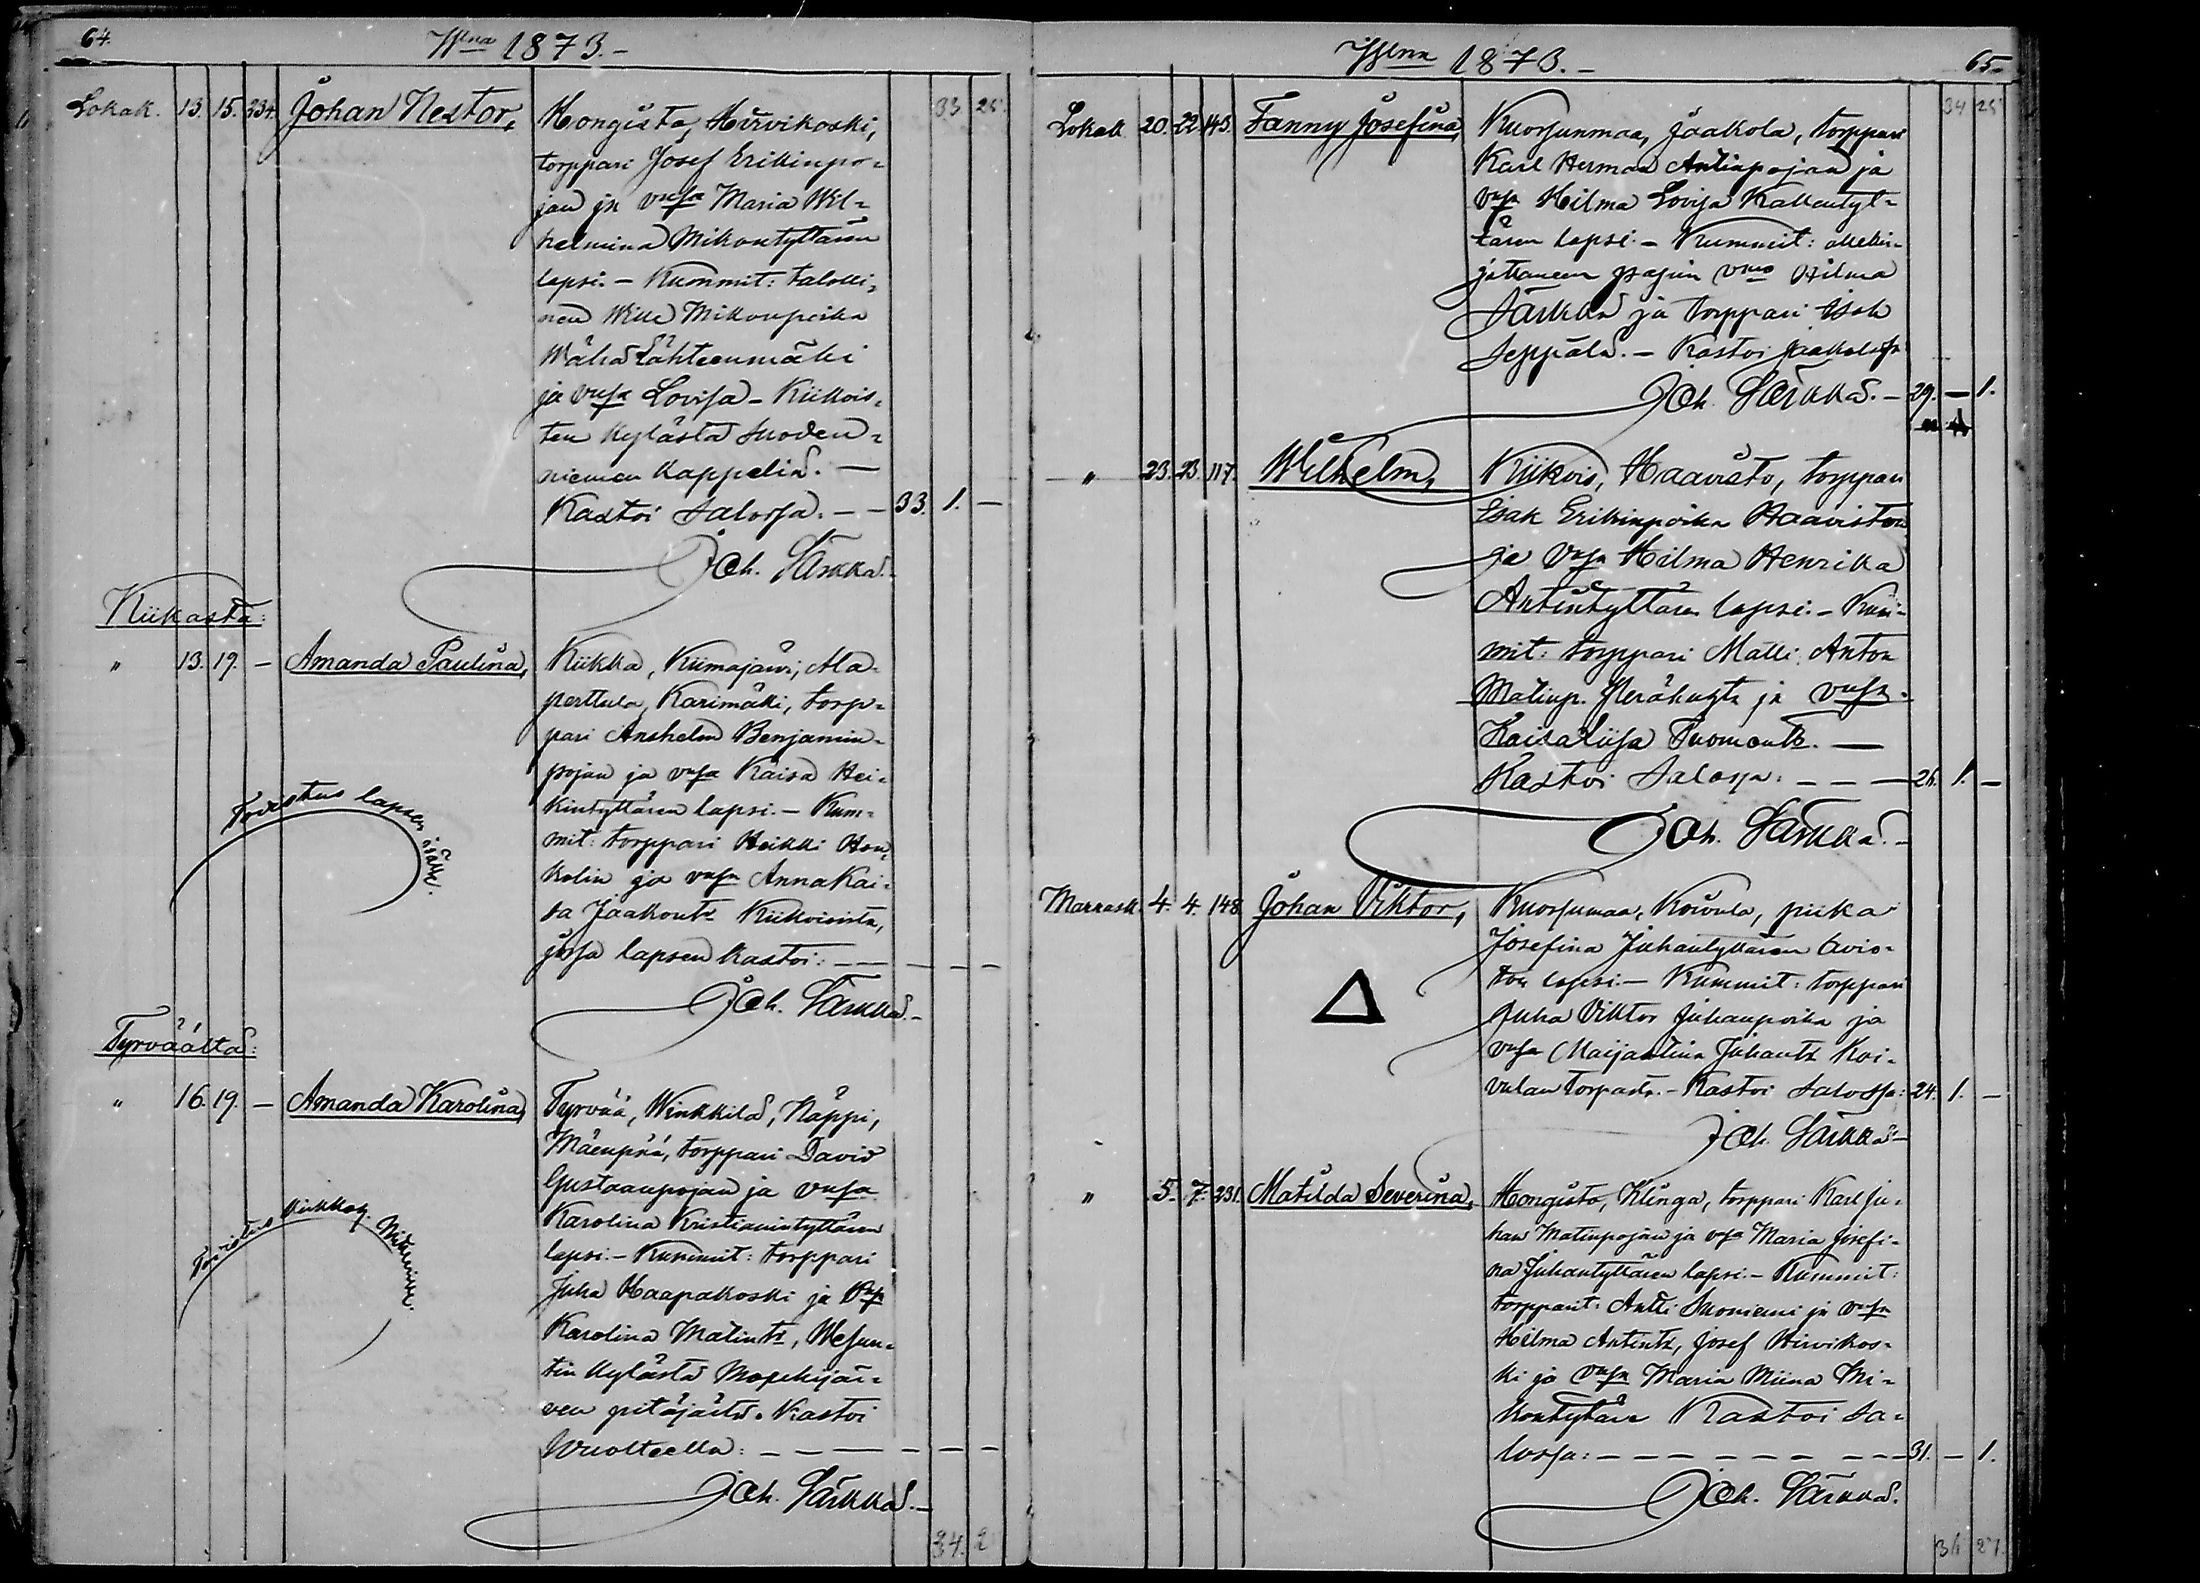 64.
1873.-
33 25.
Lokak. 13. 15. 234. Johan Nestor, Hongisto, Hirvikoski,
torppari Josef Erikinpo-
jan ja vmsa Maria Wil-
helmina Mikontyttären
lapsi. - Kummit: talolli-
nen Wille Mikonpoika
Wähä Lähteenmäki
ja vmsa Lovisa - Kiikois-
ten kylästä Suoden-
niemen kappelia. -
Kastoi Salossa. - - 33. 1. -
Joh. Särkkä.
Kiikasta:
" 13. 19. - Amanda Paulina, Kiikka, Kiimajärvi, Ala-
perttula, Karimäki, torp-
pari Anshelm Benjamin-
pojan ja vmsa Kaisa Hei-
kintyttären lapsi. - Kum-
mit: torppari Heikki Hon-
kolin ja vmsa Anna Kai-
sa Jaakontr Kiikoisista,
jossa lapsen kastoi: - - - - -
Joh. Särkkä.-
Todistus lapsen isälle.
Tyrväältä:
" 16. 19. - Amanda Karolina, Tyrvää, Winkkilä, Näppi,
Mäenpää, torppari David
Gustaanpojan ja vmsa
Karolina Kristianintyttären
lapsi. - Kummit: torppari
Juha Haapakoski ja vmsa
Karolina Matintr, Wesun-
tin kylästä Mouhijär-
ven pitäjästä. Kastoi
Wuolteella: - - - - - -
Joh. Särkkä.-
Todistus kirkkoh.
34. 2
1873.-
65.
34 25
Lokak 20. 22. 145. Fanny Josefina, Kuorsunmaa, Jaakola, torppari
Karl Herman Antinpojan ja
vmsa Hilma Lovisa Kallentyt-
tären lapsi. - Kummit: allekir-
joittaneen papin vmo Hilma
Särkkä ja torppari Isak
Seppälä. - Kastoi Jaakolassa
Joh. Särkkä. - 29. - 1.
" 23. 23. 117. Wilhelm, Kiikois, Haavisto, torppari
Isak Erikinpoika Haaviston
ja vmsa Hilma Henrika
Antintyttären lapsi. - Kum-
mit: torppari Matti Anton
Matinp. ja vmsa
Kaisa Liisa Tuomontr. -
Kastoi Salossa: - - - 26. 1. -
Joh. Särkkä. -
Marrask. 4. 4. 148. Johan Viktor, Kuorsumaa, Koivula, piika
Josefina Juhantyttären avio-
ton lapsi. - Kummit: torppari
Juha Viktor Juhanpoika ja
vmsa Maijastiina Juhantr Koi-
vulan torpasta. - Kastoi Salossa: 24. 1. -
Joh. Särkkä-
" 5. 7. 231. Matilda Severina, Hongisto, Klinga, torppari Karl Ju-
han Matinpojan ja vsa Maria Josefi-
na Juhantyttären lapsi. - Kummit:
torpparit: Antti Suoniemi ja vmsa
Hilma Antintr, Josef Hirvikos-
ki ja vmsa Maria Miina Mi-
kontytär Kastoi Sa-
lossa: - - - - - - - 31. - 1.
Joh. Särkkä.
36 27.